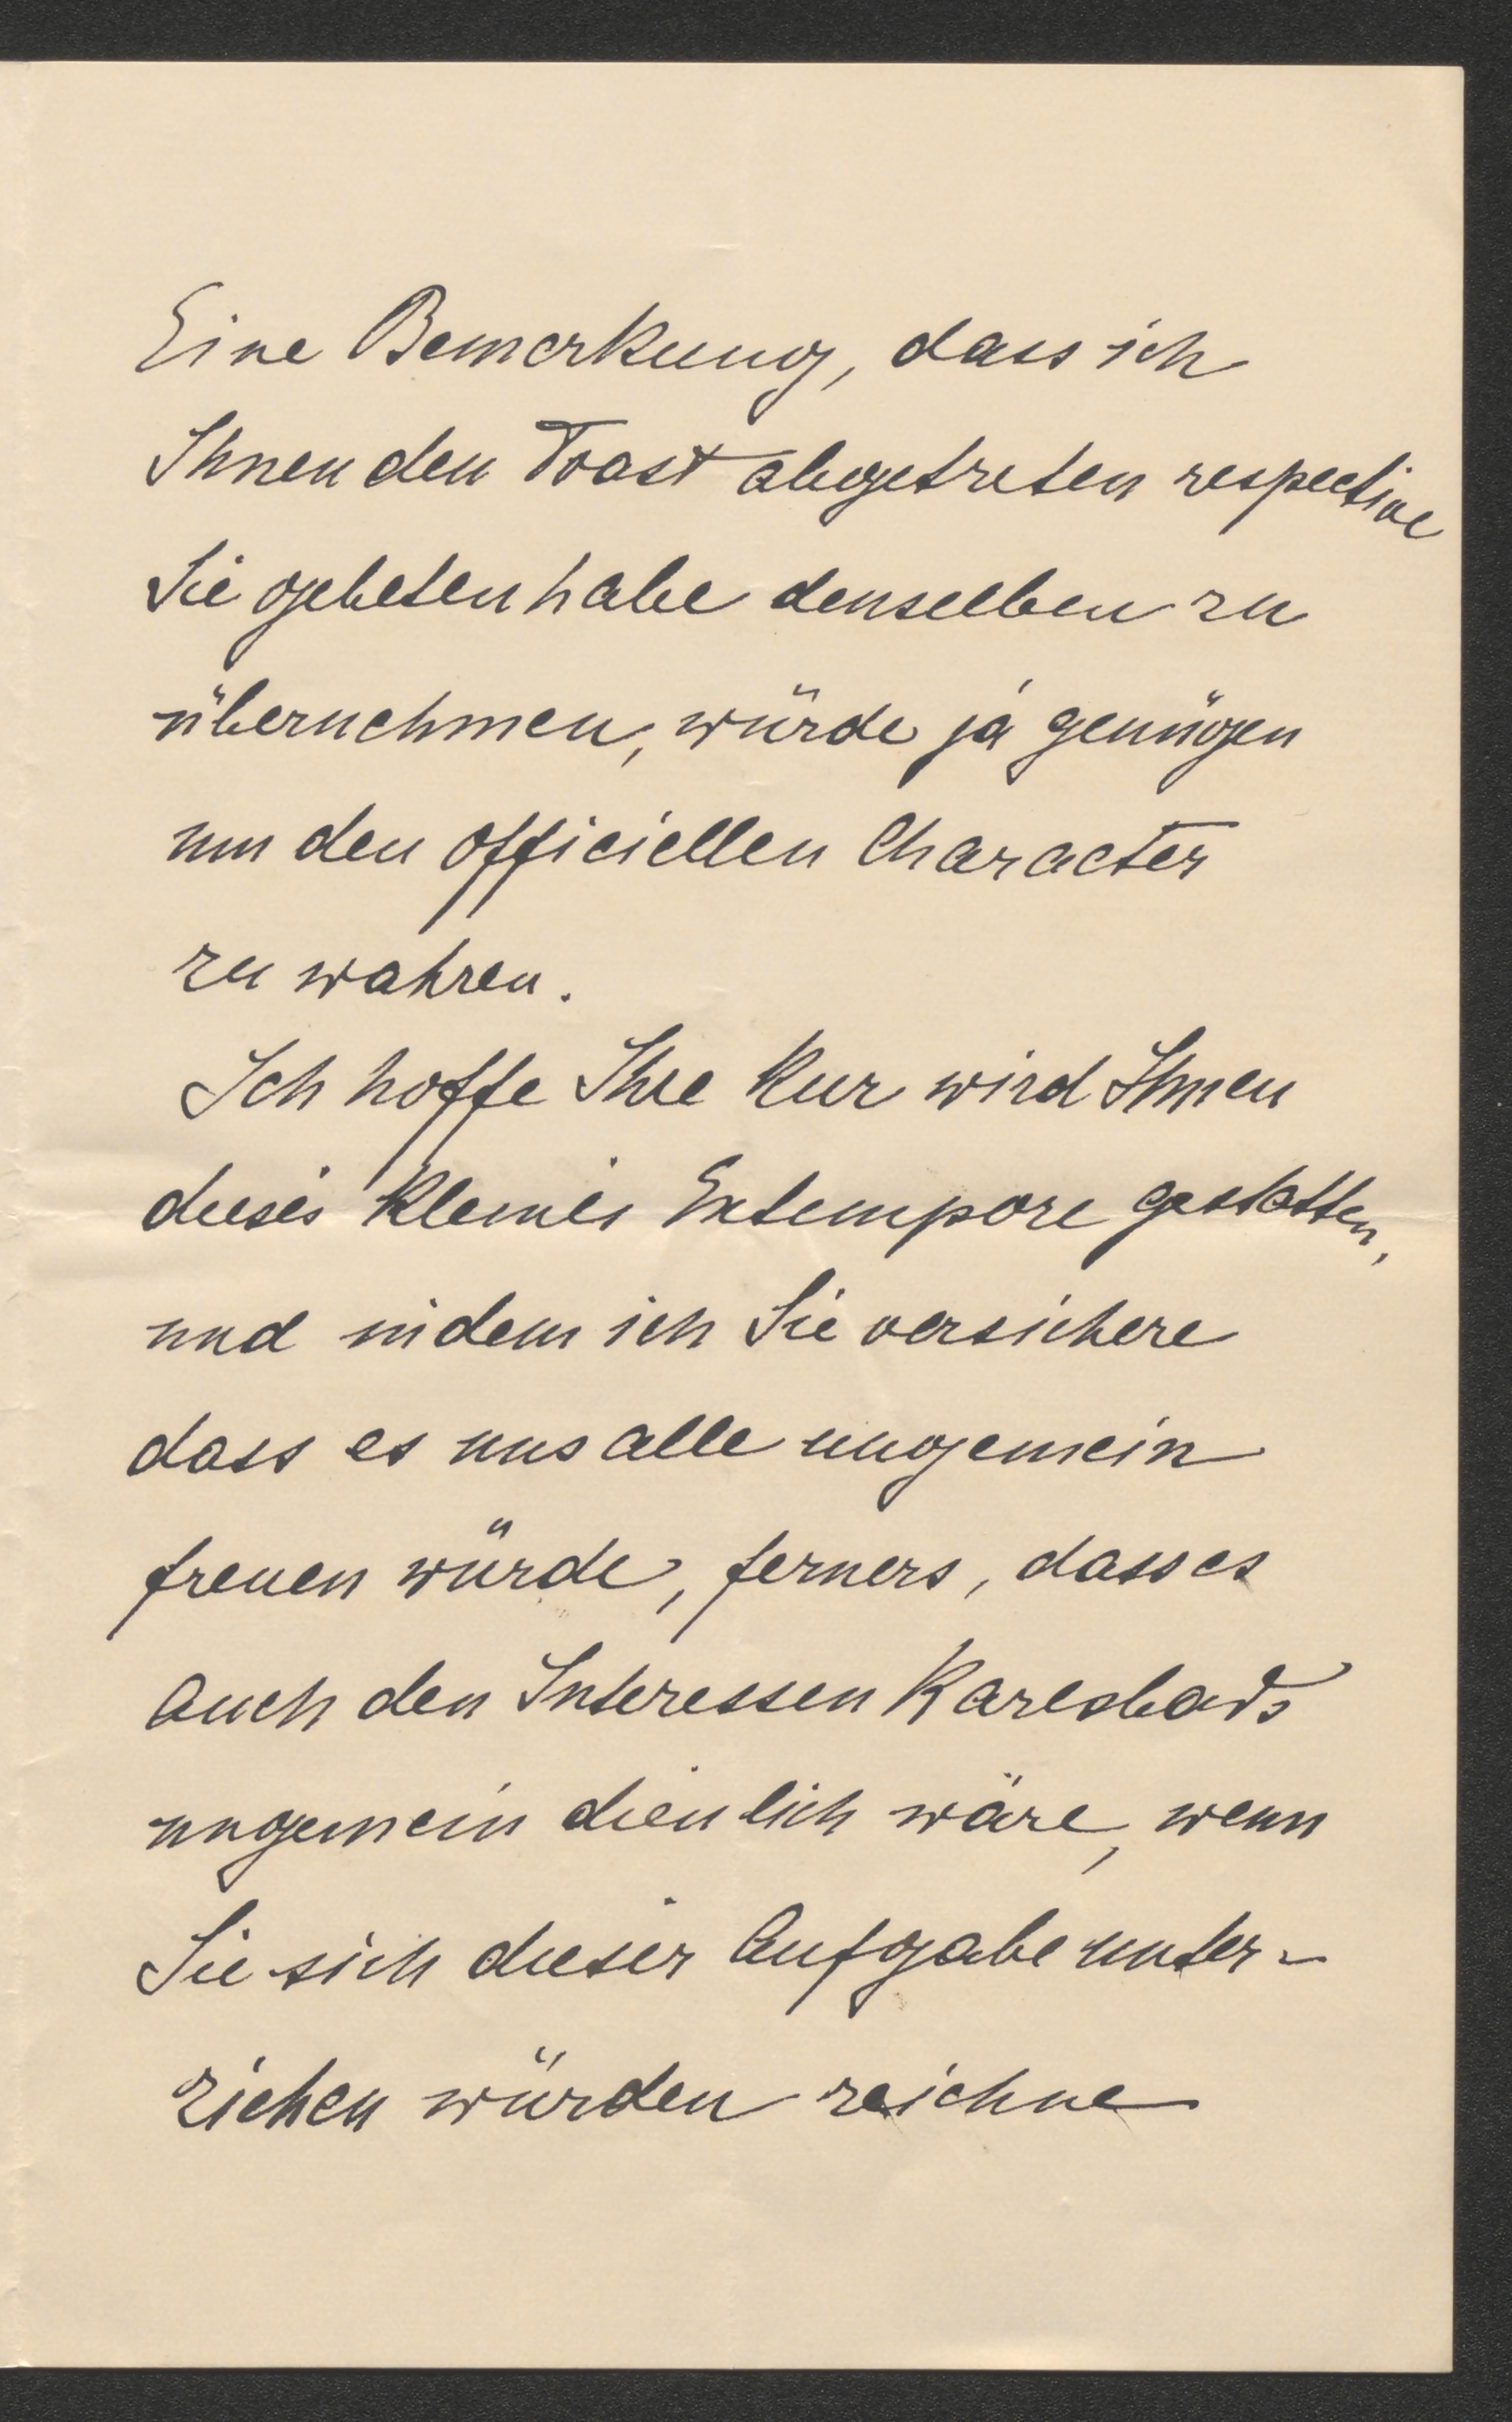 Eine Bemerkung, dass ich
Ihnen den Toast abgetreten respective
Sie gebeten habe denselben zu
übernehmen, würde ja genügen
um den officiellen Character
zu wahren.
Ich hoffe Ihre Kur wird Ihnen
dieses kleine Extempore gestatten,
und indem ich Sie versichere
dass es uns alle ungemein
freuen würde, ferners, dass es
auch den Interessen Karlsbads
ungemein dienlich wäre, wenn
Sie sich dieser Aufgabe unter-
ziehen würden zeichne